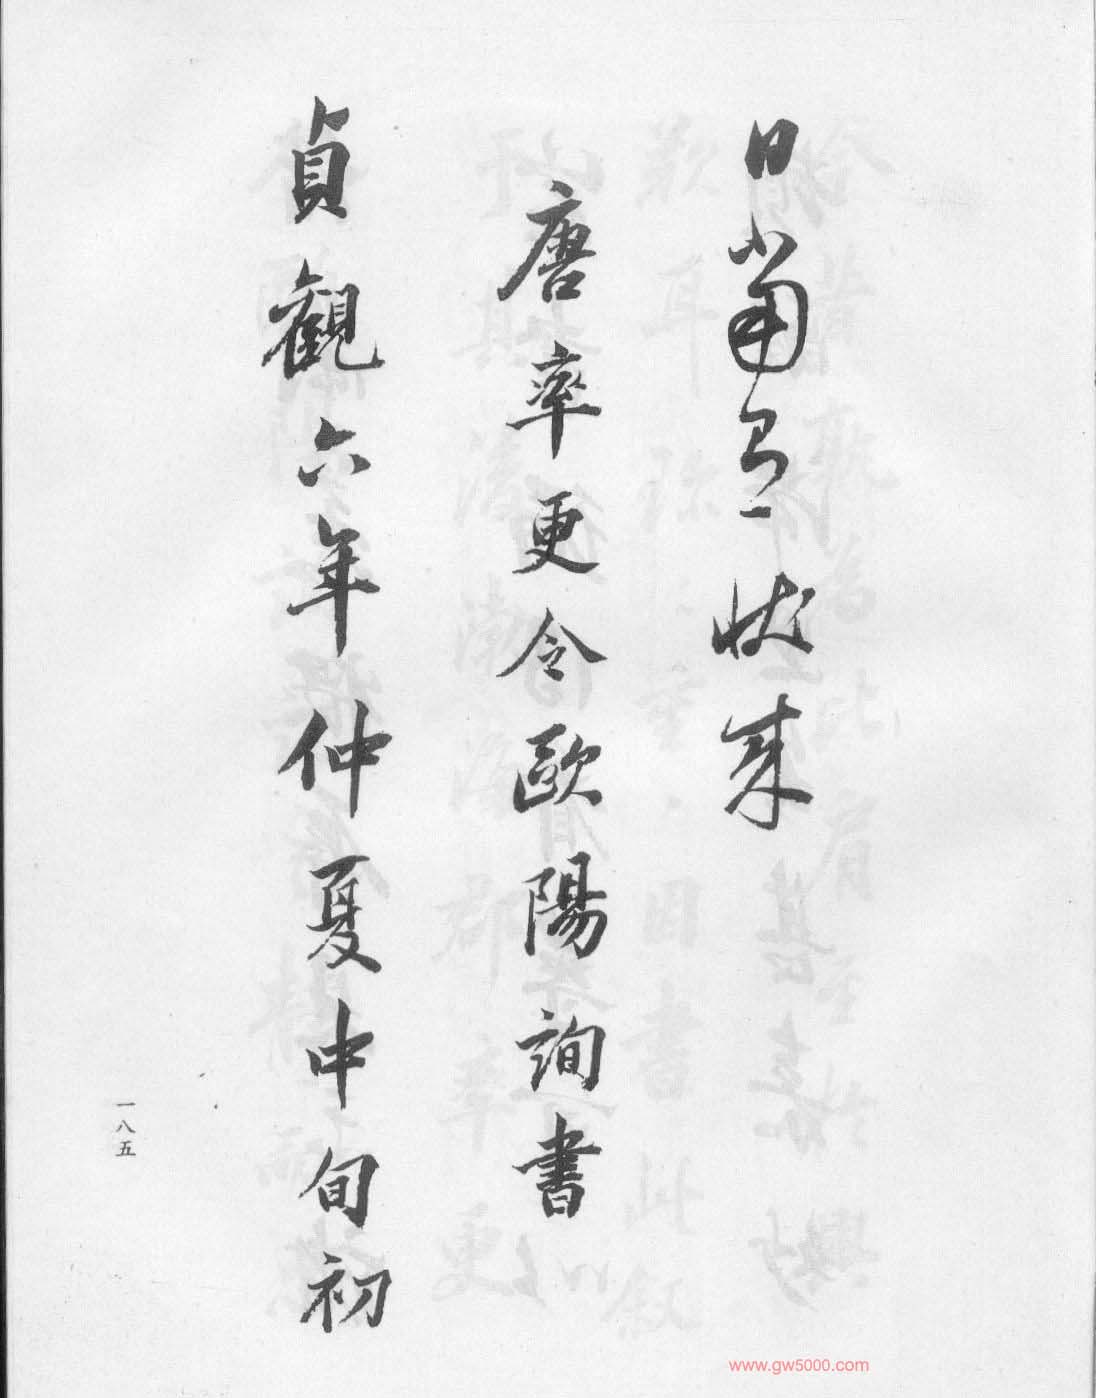 日當 狀來
唐率更令歐陽詢書
貞觀六年仲夏中旬初
一八五
www.gw5000.com